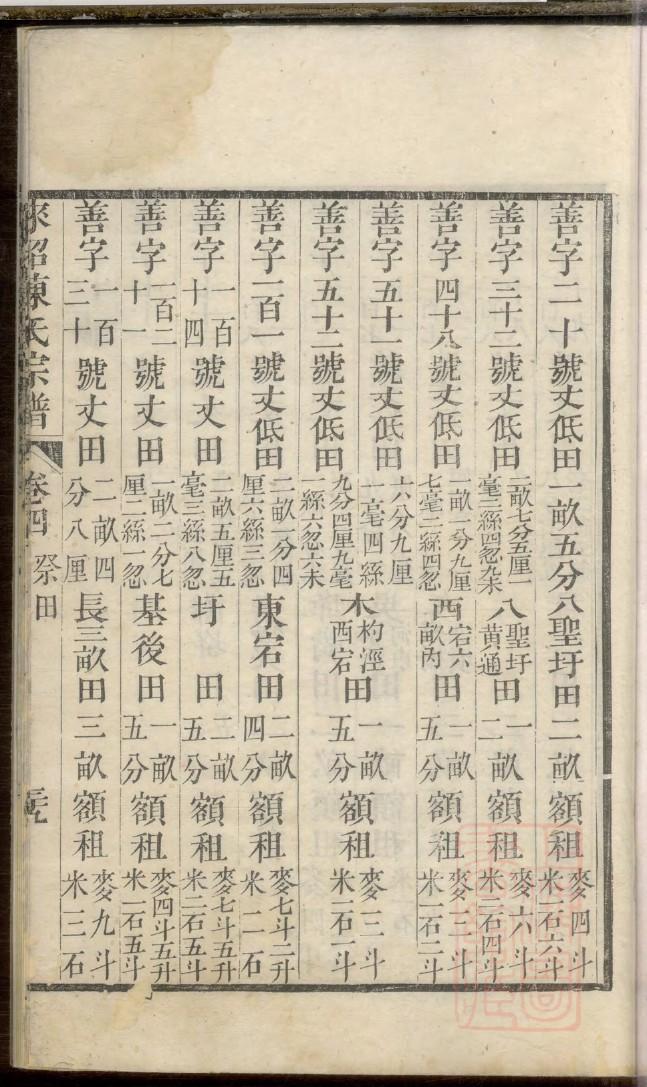 善字二十號丈低田一畝五分八聖圩田二畝額租麥四斗米一石六斗
善字三十二號丈低田二畝七分五厘一毫三絲四忽九末八聖圩黃通田一二畝額租麥六斗米二石四斗
善字四十八號丈低田一畝一分九厘七毫二絲四忽西宕六畝內田一畝五分額租麥三斗米一石二斗
善字五十一號丈低田六分九厘一毫四絲
善字五十二號丈低田九分四厘九毫一絲六忽六末木杓涇西宕田一畝五分額租麥三斗米一石一斗
善字一百一號丈低田二畝一分四厘六絲三忽東宕田二畝四分額租麥七斗二升米二石
善字一百十四號丈田二畝五厘五毫三絲八忽圩田二畝五分額租麥七斗五升米二石五斗
善字一百二十一號丈田一畝二分七厘二絲一忽基後田一畝五分額租麥四斗五升米一石五斗
善字一百三十號丈田二畝四分八厘長三畝田三畝額租麥九斗米三石
陳氏宗譜 卷四 祭田